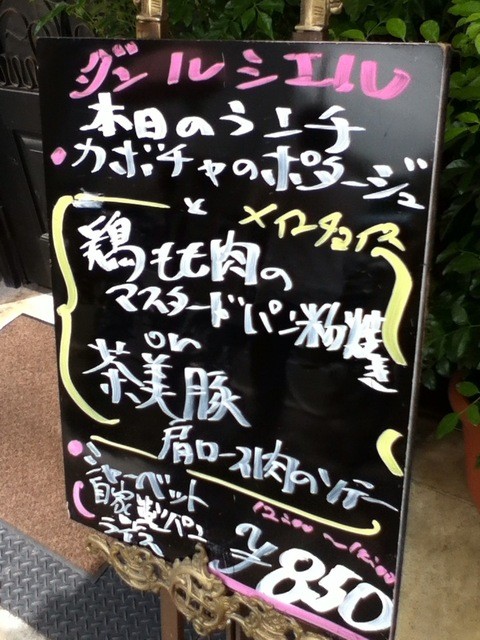 ダンルシエル
本日のランチ
カボチャのポタージュ
と メインチョイス
鶏もも肉の
マスタードパン粉焼き
or
茶美豚
肩ロース肉のソテー
シャーベット
自家製パン
ライス
12:00〜
¥850